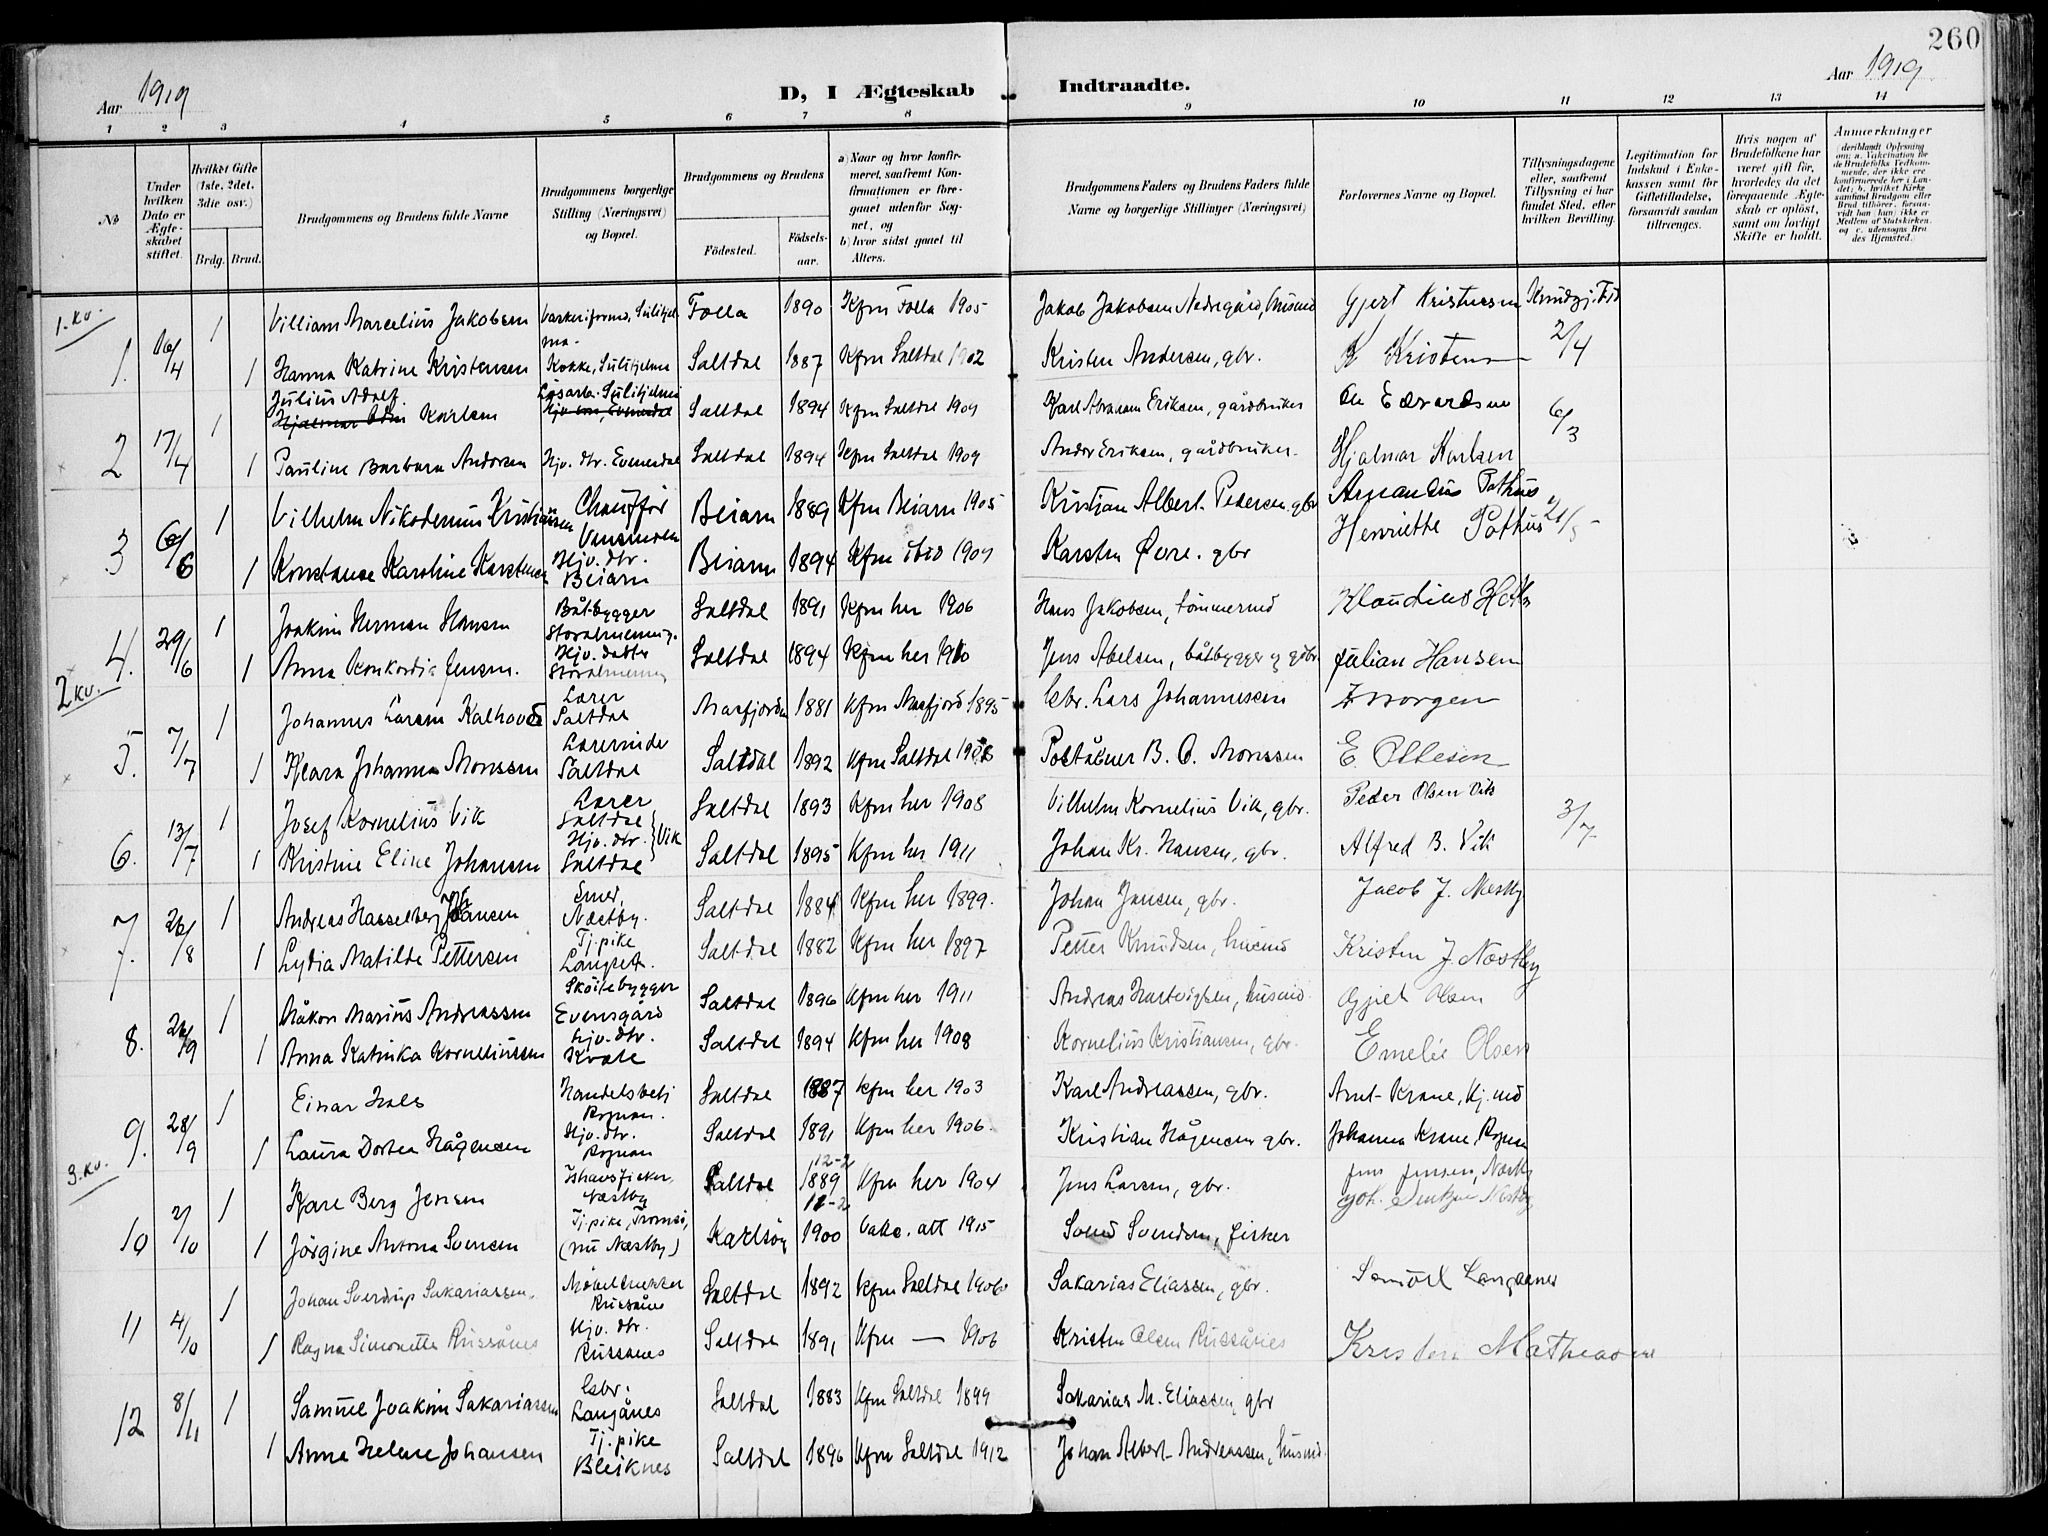 260
Aar 1919
D, I Ægteskab Indtraadte.
Aar 1919
1 2 3 4 5 6 7 8 9 10 11 12 13 14
No
Under hvilken Dato er Ægteskabet stiftet.
Hvilket Gifte (1ste, 2det, 3die osv.)
Brdg. Brud.
Brudgommens og Brudens fulde Navne
Brudgommens borgerlige Stilling (Næringsvei) og Bopæl.
Brudgommens og Brudens
Födested.
Födsels-aar.
a) Naar og hvor konfirmeret, saafremt Konfirmationen er foregaaet udenfor Sognet, og
b) hvor sidst gaaet til Alters.
Brudgommens Faders og Brudens Faders fulde Navne og borgerlige Stillinger (Næringsvei)
Forlovernes Navne og Bopæl.
Tillysningsdagene eller, saafremt Tillysning ei har fundet Sted, efter hvilken Bevilling.
Legitimation for Indskud i Enkekassen samt for Giftetilladelse, forsaavidt saadan tiltrænges.
Hvis nogen af Brudefolkene har været gift för, hvorledes da det foregaaende Ægteskab er oplöst, samt om lovligt Skifte er holdt.
Anmærkninger (deriblandt Oplysning om; a. Vakcination for de Brudefolks Vedkommende, der ikke ere konfirmerede her i Landet; b. hvilket Kirkesamfund Brudgom eller Brud tilhörer, forsaavidt han (hun) ikke er Medlem af Statskirken, og c. udensogns Brudes Hjemsted.)
1. kv.
1 Villiam Marcelius Jakobsen Folla 1890 Kfm Folla 1905 Jakob Jakobsen Nedregård, husmd Gjert Kristensen
1. 16/4 1 Hanna Katrine Kristensen Kokke, Sulitjelma Saltdal 1887 Kfm Saltdal 1902 Kristen Andersen, gbr. K Kristensen 2/4
1 Julius Adolf Karlsen Sulitjelma Saltdal 1894 Kfm Saltdal 1909 Karl Abraham Eriksen, gårdbruker Ole Edvardsen 6/3
2 17/4 1 Pauline Barbara Andersen Hjv. dtr. Evensdal Saltdal 1894 Kfm Saltdal 1909 Ander Eriksen, gårdbruker. Hjalmar Karlsen
1 Vilhelm Nikodemus Kristiansen Chauffør Beiarn 1889 Kfm Beiarn 1905 Kristian Albert Pedersen, gbr Amandus Pothus
3 6/6 1 Konstanse Karoline Karstensen Hjv. dtr. Beiarn Beiarn 1894 Kfm ibid 1909 Karsten Øvre. gbr Henriette Pothus
1 Joakim Herman Hansen Båtbygger Storalmenning. Saltdal 1891 Kfm her 1906 Hans Jakobsen, tömmermd
4. 29/6 1 Anna Konkordia Jensen. Hjv. datter Storalmenning Saltdal 1894 Kfm her 1910 Jens Abelsen, båtbygger og gdbr. Julian Hansen
2 kv.
1 Johannes Larsen Kalhovd Lærer Saltdal Masfjorden 1881 Kfm Masfjord 1895 Gbr. Lars Johannessen
5. 7/7 1 Klara Johanna Monssen Lærerinde Saltdal Saltdal 1892 Kfm Saltdal Poståbner B. O. Monssen E. Ottesen
1 Josef Kornelius Vik Lærer Saltdal Saltdal 1893 Kfm her 1908 Vilhelm Kornelius Vik, gbr. Peder Olsen Vik 3/7
6. 13/7 1 Kristine Eline Johansen Hjv. dtr. Saltdal } Vik Saltdal 1895 Kfm her 1911 Johan Kr. Hansen, gbr. Alfred B. Vik
1 Andreas Hasselberg Jansen Smed. Næstby. Saltdal 1884 Kfm her 1899. Johan Jansen, gbr. Jacob J. Næstby
7. 26/8 1 Lydia Matilde Pettersen Tj. pike Saltdal 1882 Kfm her 1897 Petter Knudsen, husmd Kristen J. Næstby
1 Håkon Marius Andreassen Skøitebygger Evensgård Saltdal 1896 Kfm her 1911 Andreas Hartvigsen, husmd. Olsen
8. 26/9 1 Anna Katinka Korneliussen Hjv. dtr. Kvæle Saltdal 1894 Kfm her 1908 Kornelius Kristiansen, gbr. Emelie Olsen
1 Einar Hals Handelsbetj Rognan. Saltdal 1887 Kfm her 1903 Karl Andreassen, gbr. Arnt Krane, Kj. md
9. 28/9 1 Laura Dortea Hågensen Hjv. dtr. Rognan Saltdal 1891 Kfm her 1906. Kristian Hågensen gbr. Johanna Krane, Rognan
3. kv.
1 Kare Berg Jensen Ishavsfisker, Næstby Saltdal 12-2 1889 Kfm her 1904 Jens Larsen, gbr. Jens Jensen, Næstby
10 2/10 1 Jörgine Antona Svensen Tj. pike, Tromsö, (nu Næstby) Karlsöy 1900 Vakc. att 1915 Svend Svendsen, fisker
1 Johan Sverdrup Sakariassen. Møbelsnekker Russånes Saltdal 1892 Kfm Saltdal 1906 Sakarias Eliassen, gbr.
11 4/10 1 Ragna Simonette Russånes Hjv. dtr. Russånes Saltdal 1891 Kfm — 1906 Kristen Olsen Russånes Kristen Mathiassen
1 Samuel Joakim Sakariassen Gbr. Langånes Saltdal 1883 Kfm Saltdal 1899 Sakarias M. Eliassen, gbr
12 8/11 1 Anna Helene Johansen Tj. pike Bleiknes Saltdal 1896 Kfm Saltdal 1912 Johan Albert Andreassen, husmd.